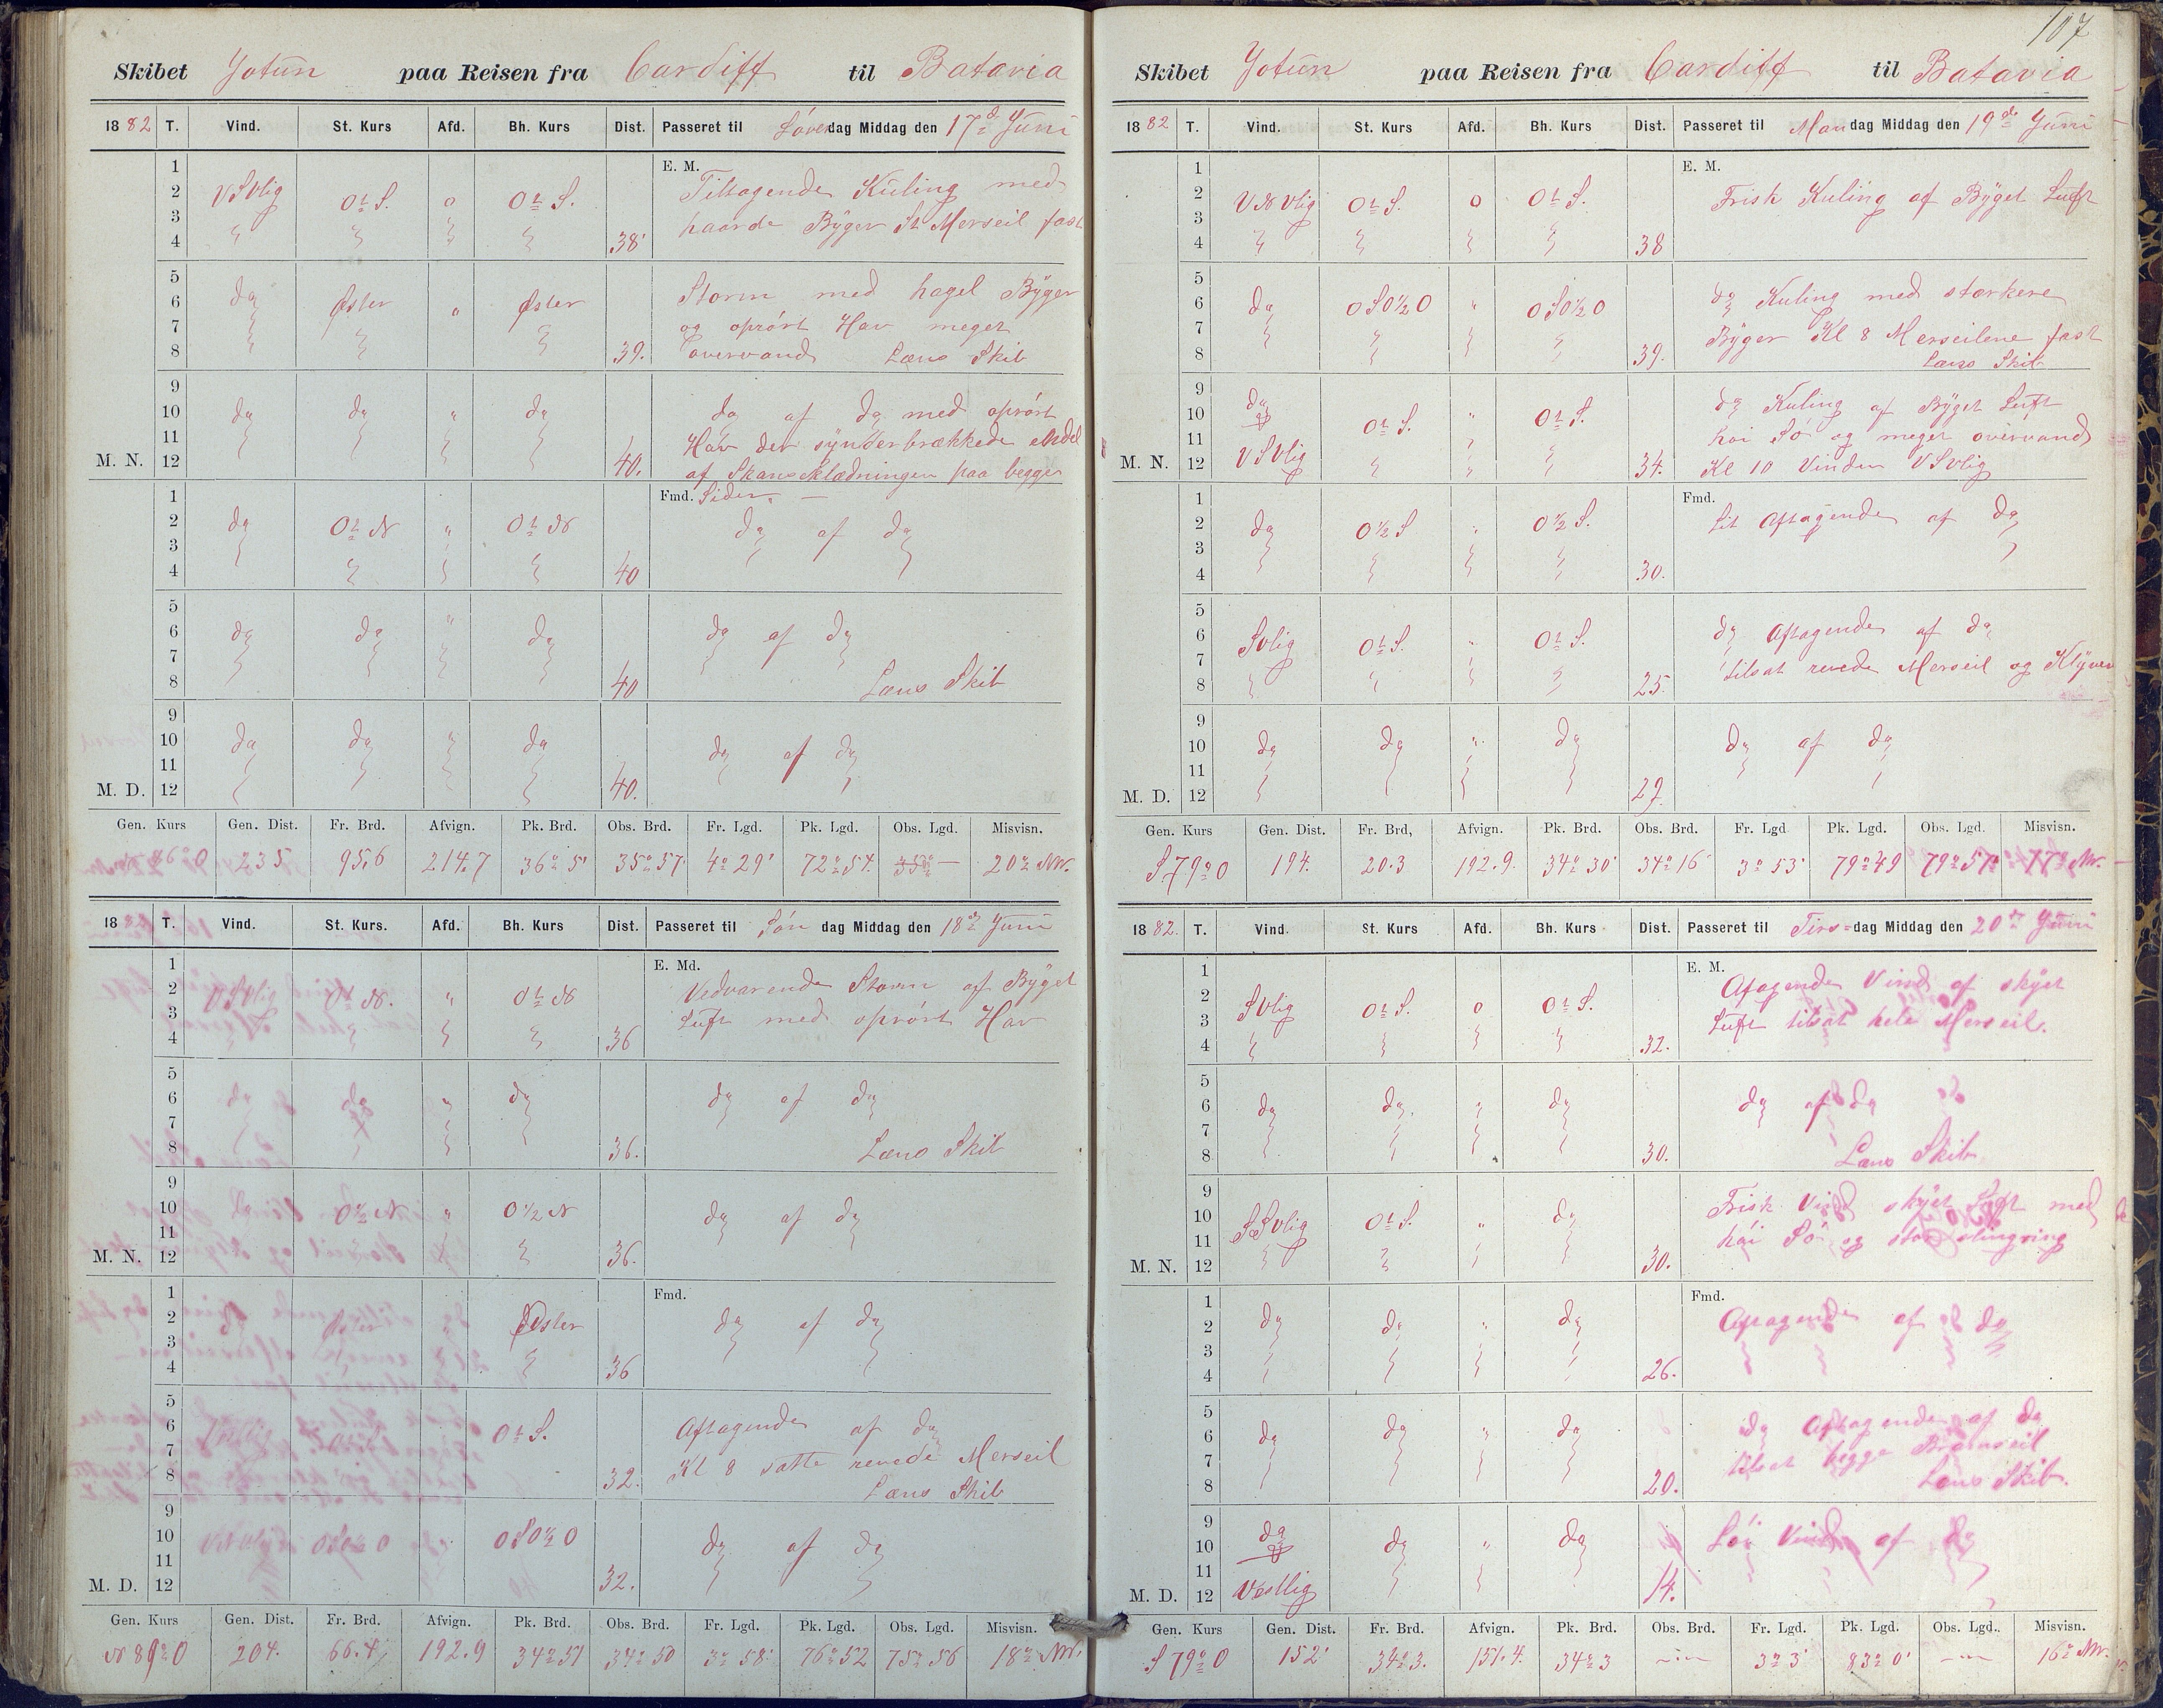 107
Skibet Jotun paa Reisen fra Cardiff til Batavia
1882 T. Vind. St. Kurs Afd. Bh. Kurs Dist. Passeret til Løverdag Middag den 17d Juni
1 E. M.
2 VSVlig OtS. o OtS. Tiltagende Kuling med
3 haarde Byger St Merseil fast
4 38'
5
6 do Øster o Øster Storm med hagel Byger
7 og oprørt Hav meget
8 39. overvand Læns Skib
9
10 do do " do do af do med oprørt
11 Hav der synderbrækkede endel
M. N. 12 40. af Skanseklædningen paa begge
1 Fmd. Sider. —
2 do Ot N " Ot N do af do
3
4 40
5
6 do do " do do af do
7
8 40 Læns Skib
9
10 do do " do do af do
11
M. D. 12 40.
Gen. Kurs Gen. Dist. Fr. Brd. Afvign. Pk. Brd. Obs. Brd. Fr. Lgd. Pk. Lgd. Obs. Lgd. Misvisn.
86°O 235 95,6 214.7 36° 5' 35° 57' 4° 29' 72° 54. — 20° NW.
1882 T. Vind. St. Kurs. Afd. Bh. Kurs Dist. Passeret til Søn dag Middag den 18d Juni
1 E. Md.
2 VSVlig Ot N. " Ot N Vedvarende Storm af Byget
3 Luft med oprørt Hav
4 36
5
6 do do " do do af do
7
8 36. Læns Skib
9
10 O½ N " O½ N do af do
11
M. N. 12 36.
1 Fmd.
2 Øster " Øster do af do
3
4 36
5
6 OtS. Aftagende af do
7 Kl 8 satte revede Merseil
8 32. Læns Skib
9
10 OSO½O OSO½O do af do
11
M. D. 12 32.
Gen. Kurs Gen. Dist. Fr. Brd. Afvign. Pk. Brd. Obs. Brd. Fr. Lgd. Pk. Lgd. Obs. Lgd. Misvisn.
N 89°O 204. 66.4 192.9 34° 51 34° 50 3° 58' 76° 52 75° 56 18° NW.
Skibet Jotun paa Reisen fra Cardiff til Batavia
1882 T. Vind. St. Kurs Afd. Bh. Kurs Dist. Passeret til Mandag Middag den 19de Juni
1 E. M.
2 VNVlig OtS. o OtS. Frisk Kuling af Byget Luft
3
4 38
5
6 do OSO½O " OSO½O do Kuling med stærkere
7 Byger Kl 8 Merseilene fast
8 39. Læns Skib
9
10 do OtS. " OtS. do Kuling af Byget Luft
11 høi Sø og meget overvand
M. N. 12 VSVlig 34. Kl 10 Vinden VSVlig
1 Fmd.
2 do O½S " O½S. Lit Aftagende af do
3
4 30.
5
6 SVlig OtS. " OtS. do Aftagende af do
7 tilsat revede Merseil og Klyver
8 25.
9
10 do do " do do af do
11
M. D. 12 27.
Gen. Kurs Gen. Dist. Fr. Brd, Afvign. Pk. Brd. Obs. Brd. Fr. Lgd Pk. Lgd. Obs. Lgd. Misvisn.
S.79°O 194. 20.3 192.9. 34° 30' 34° 16' 3° 53' 79° 49 79° 57' 17° NW.
1882. T. Vind. St. Kurs Afd. Bh. Kurs Dist. Passeret til Tirs-dag Middag den 20de Juni
1 E. M.
2 SVlig OtS. o OtS. Aftagende Vind af skyet
3 Luft tilsat hele Merseil.
4 32.
5
6 do do. " do do af do
7
8 30. Læns Skib
9
10 SSVlig OtS. " do Frisk Vind skyet Luft med
11 høi Sø og stor slingring
M. N. 12 30.
1 Fmd.
2 do do " do Aftagende af do
3
4 26.
5
6 do do " do do Aftagende af do
7 tilsat begge Bramseil
8 20. Læns Skib.
9
10 do do " do Løi Vind af do
11
M. D. 12 Vestlig 14.
Gen. Kurs Gen. Dist. Fr. Brd. Afvign. Pk. Brd. Obs. Brd. Fr. Lgd. Pk. Lgd. Obs. Lgd.. Misvisn.
S 79°O 152' 34° 3. 151.4. 34° 3 — 3° 3' 83° 0' — 16° NW.